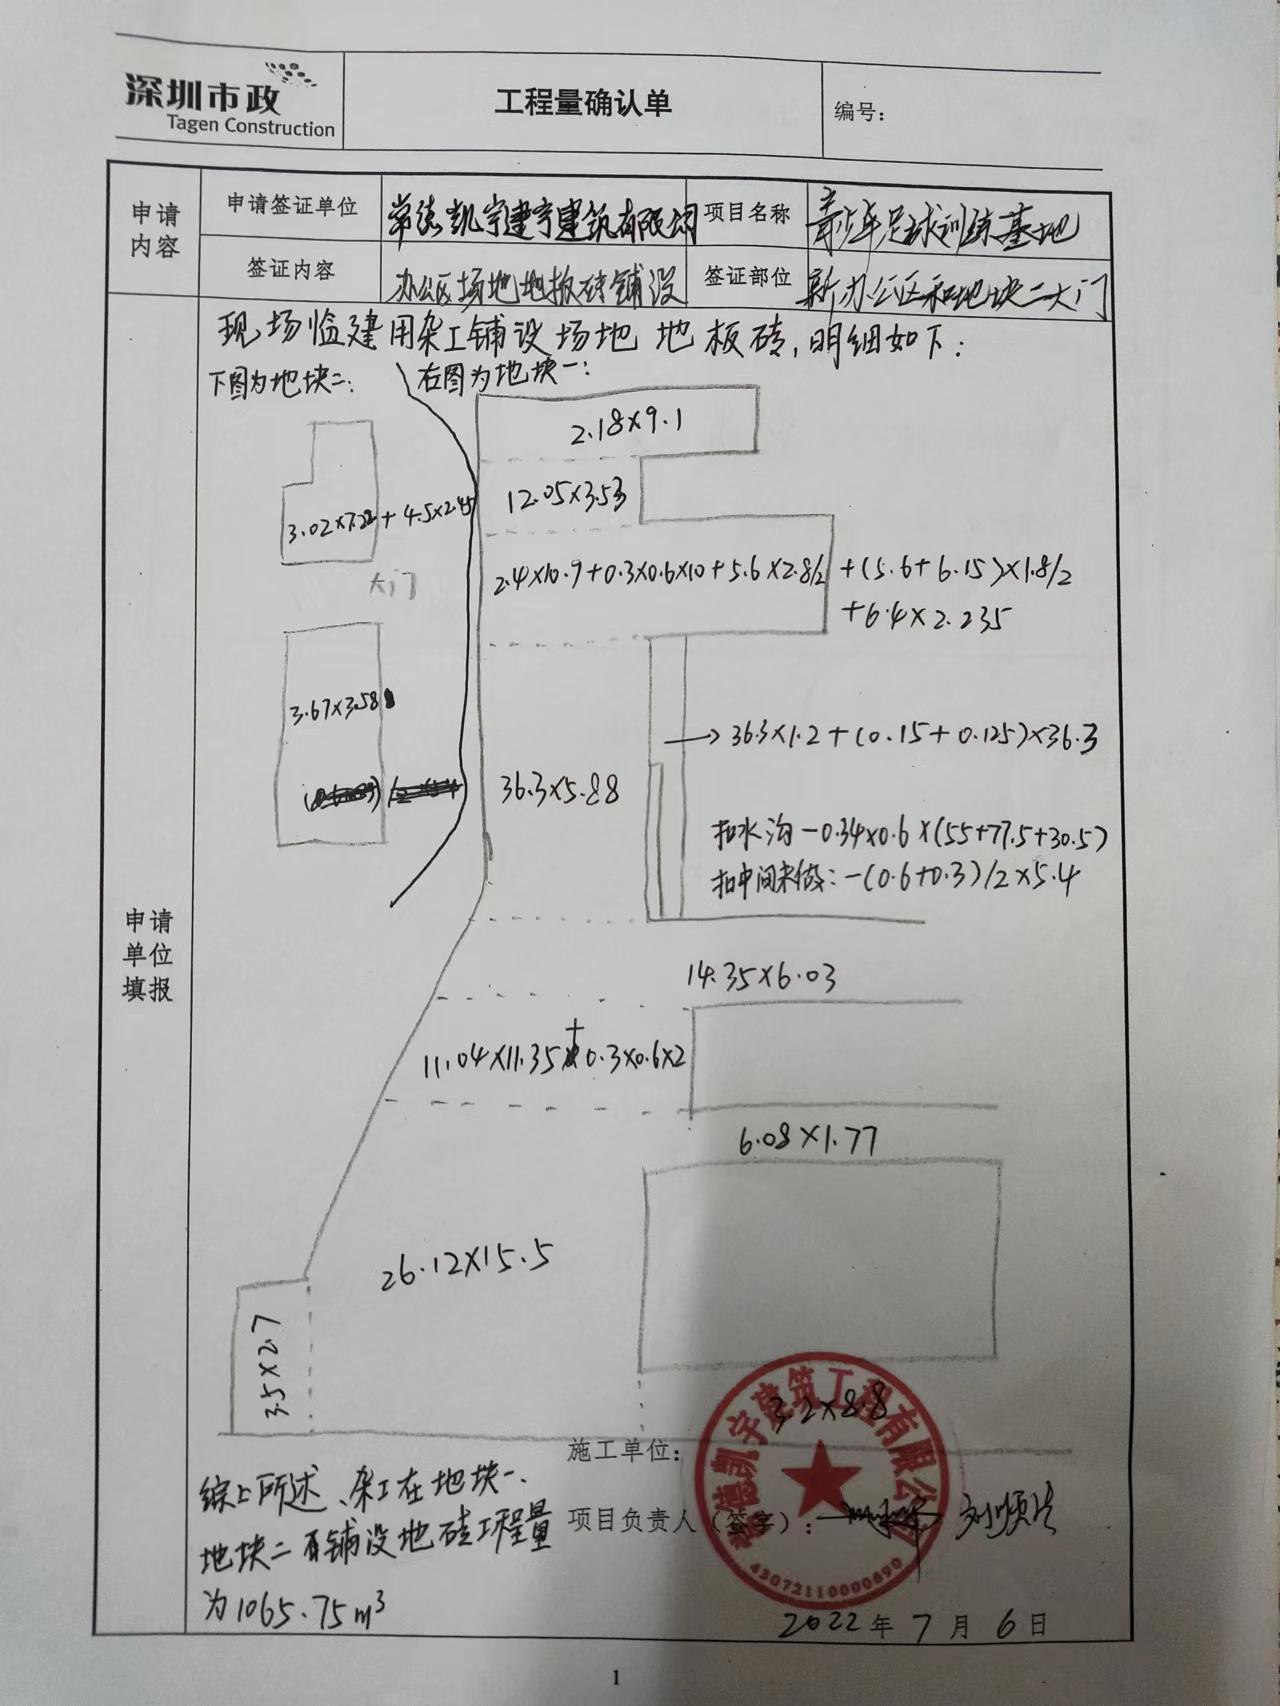 深圳市政
Tagen Construction
工程量确认单
编号：
申请内容
申请签证单位
常德凯宇建宇建筑有限公司
项目名称
青少年足球训练基地
签证内容
办公区场地地板砖铺设
签证部位
新办公区和地块二大门
现场临建用杂工铺设场地地板砖，明细如下：
下图为地块二：
右图为地块一：
2.18×9.1
12.05×3.53
3.02×7.22+4.5×2.45
大门
2.4×10.9+0.3×0.6×10+5.6×2.8/2+(5.6+6.15)×1.8/2
+6.4×2.235
3.67×3.58
→36.3×1.2+(0.15+0.125)×36.3
36.3×5.88
扣水沟-0.34×0.6×(55+77.5+30.5)
扣中间未做：-(0.6+0.3)/2×5.4
申请
单位
填报
14.35×6.03
11.04×11.35+0.3×0.6×2
6.08×1.77
26.12×15.5
3.5×2.7
3.2×8.8
施工单位：
项目负责人（签字）：
常德凯宇建筑工程有限公司
综上所述、杂工在地块一、
地块二 铺设地砖工程量
为1065.75m³
2022年7月6日
1